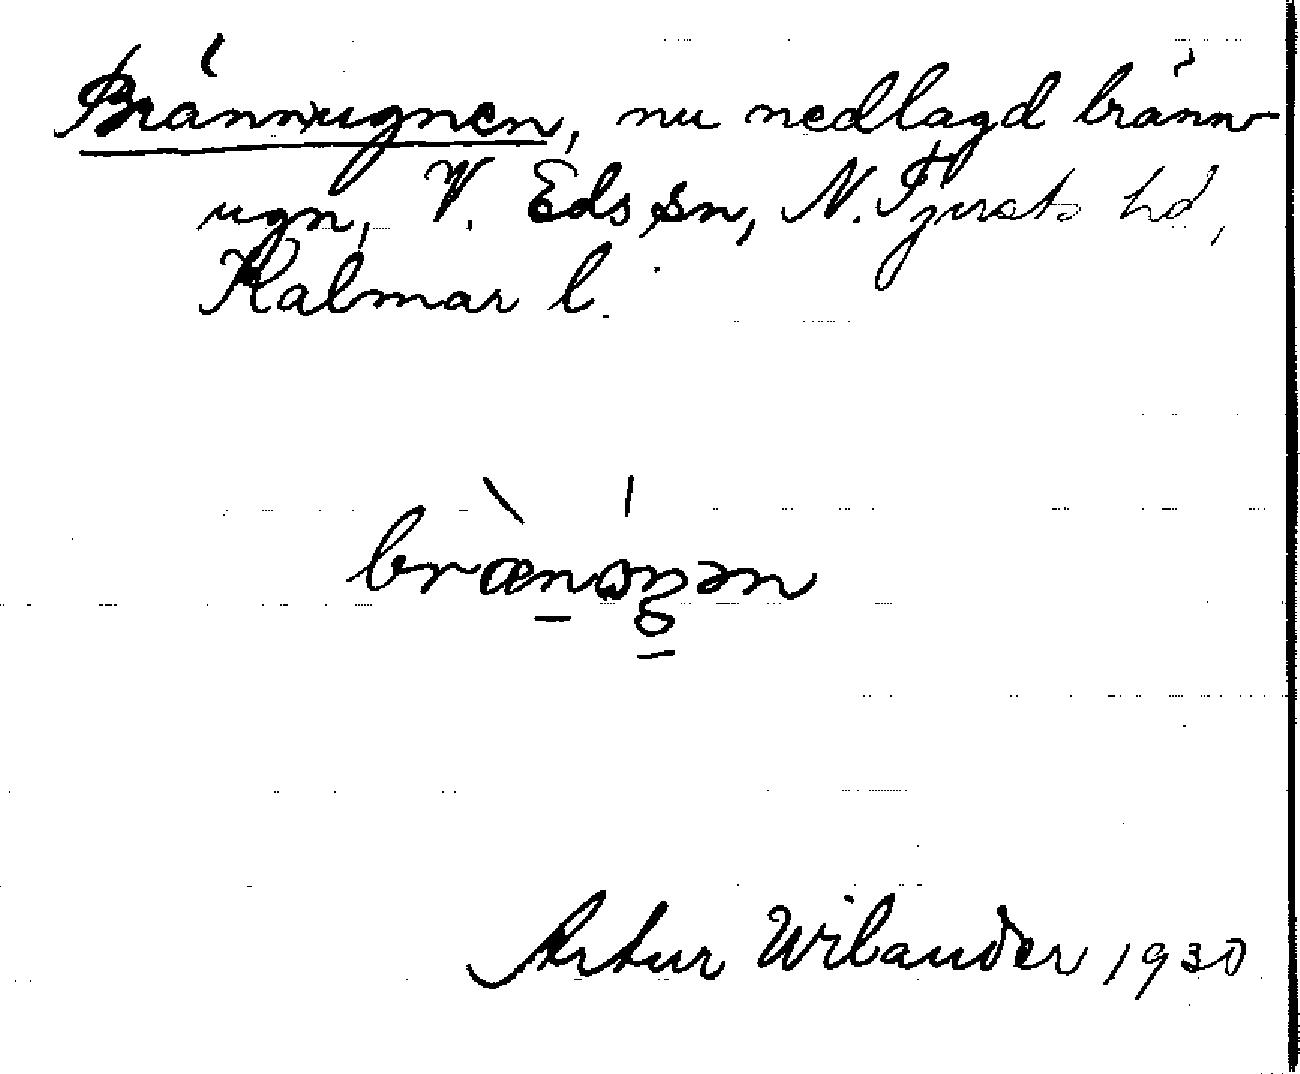 Brännugnen, nu nedlagd bränn-
ugn, V. Eds sn, N. Tjusts hd,
Kalmar l.
Artur Wilander 1930